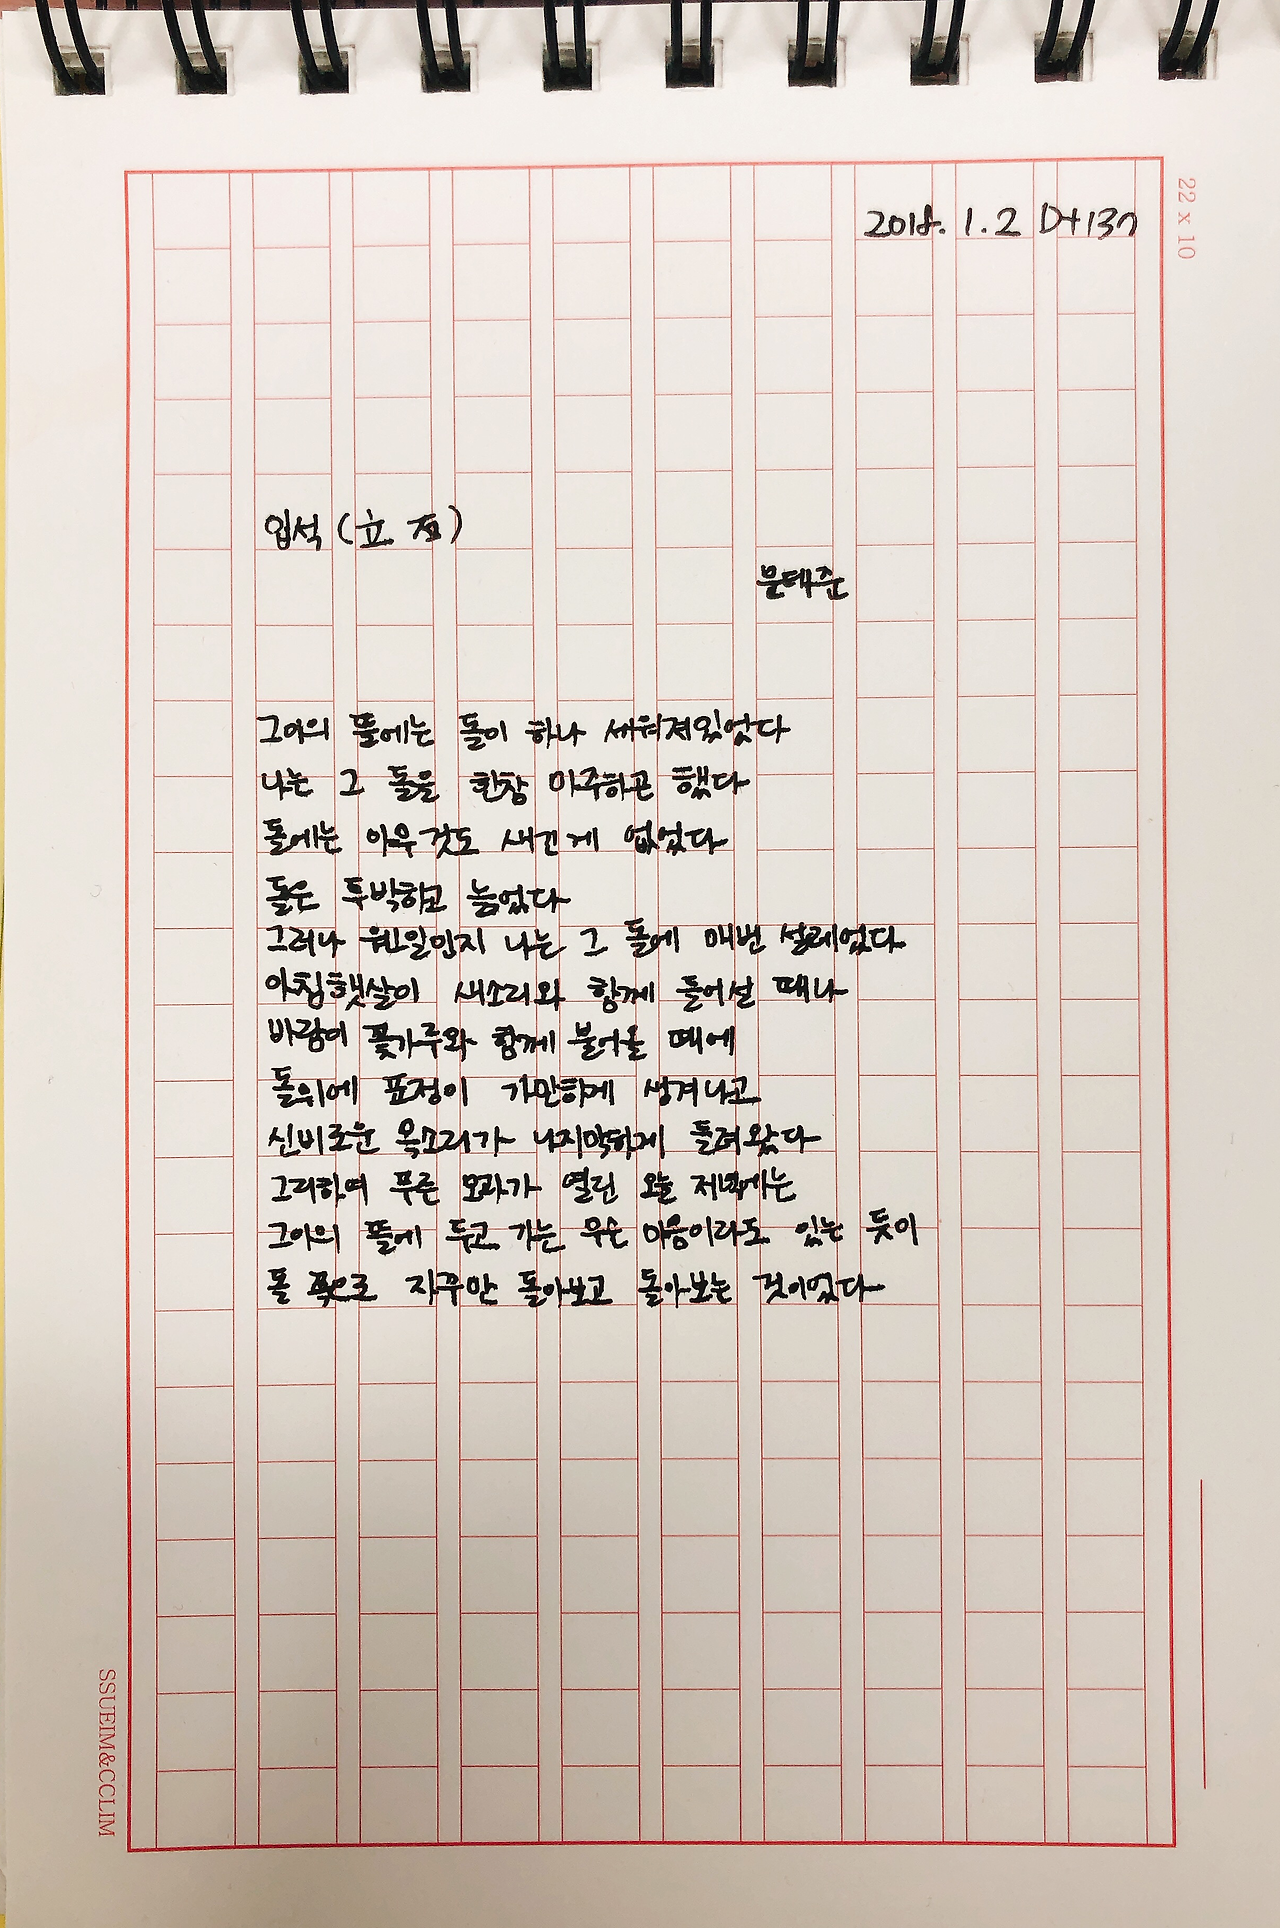 2018. 1.2 D+137
22 x 10
입석 (立石)
문태준
그이의 뜰에는 돌이 하나 세워져있었다
나는 그 돌을 한참 마주하곤 했다
돌에는 아무것도 새긴게 없었다
돌은 투박하고 늙었다
그러나 웬일인지 나는 그 돌에 매번 설레었다
아침햇살이 새소리와 함께 들어설 때나
바람이 꽃가루와 함께 불어올 때에
돌위에 표정이 가만하게 생겨나고
신비로운 목소리가 나지막하게 들려왔다
그리하여 푸른 모과가 열린 오늘 저녁에는
그이의 뜰에 두고 가는 무슨 마음이라도 있는 듯이
돌 쪽으로 자꾸만 돌아보고 돌아보는 것이었다
SSUEIM&CCLIM